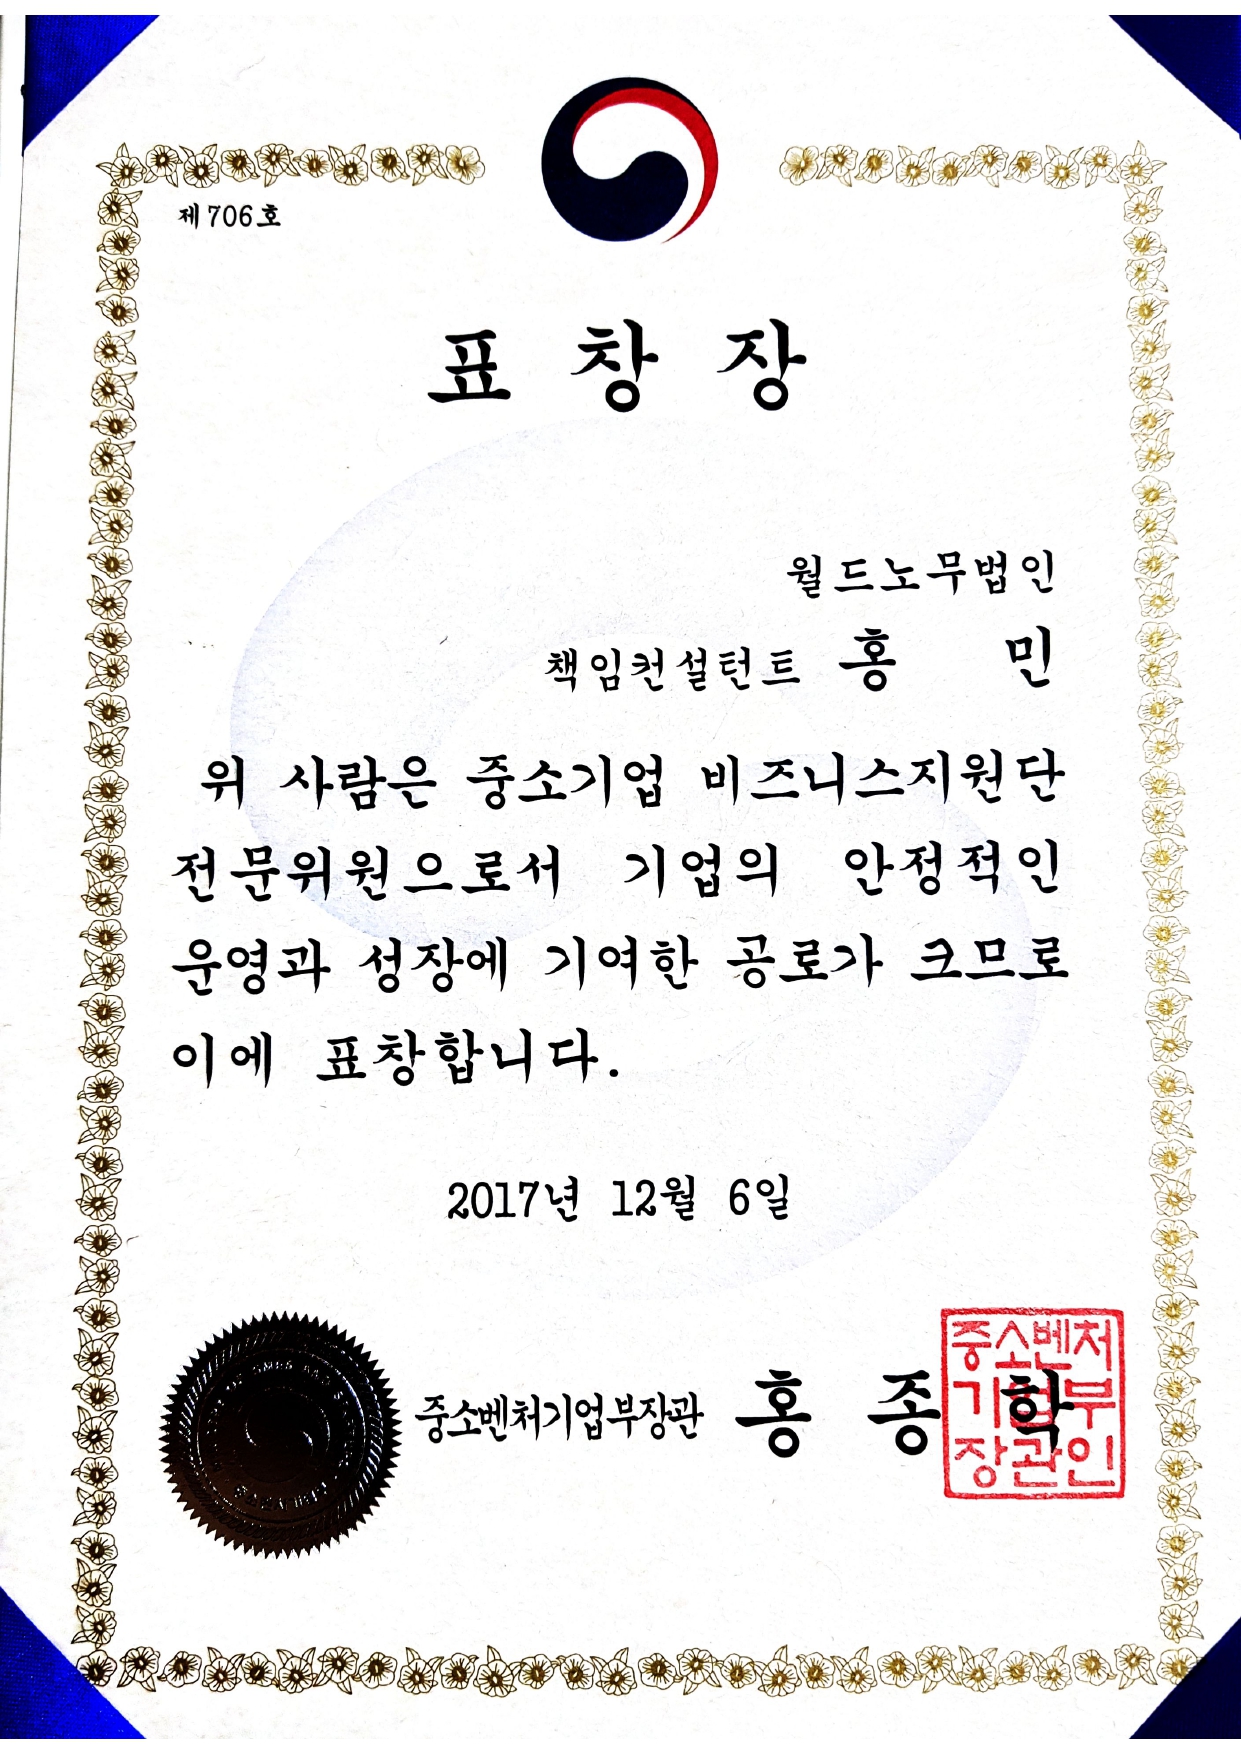 제 706 호
표 창 장
월드노무법인
책임컨설턴트 홍 민
위 사람은 중소기업 비즈니스지원단
전문위원으로서 기업의 안정적인
운영과 성장에 기여한 공로가 크므로
이에 표창합니다.
2017년 12월 6일
중소벤처기업부장관 홍 종 학
중소벤처
기업부
장관인